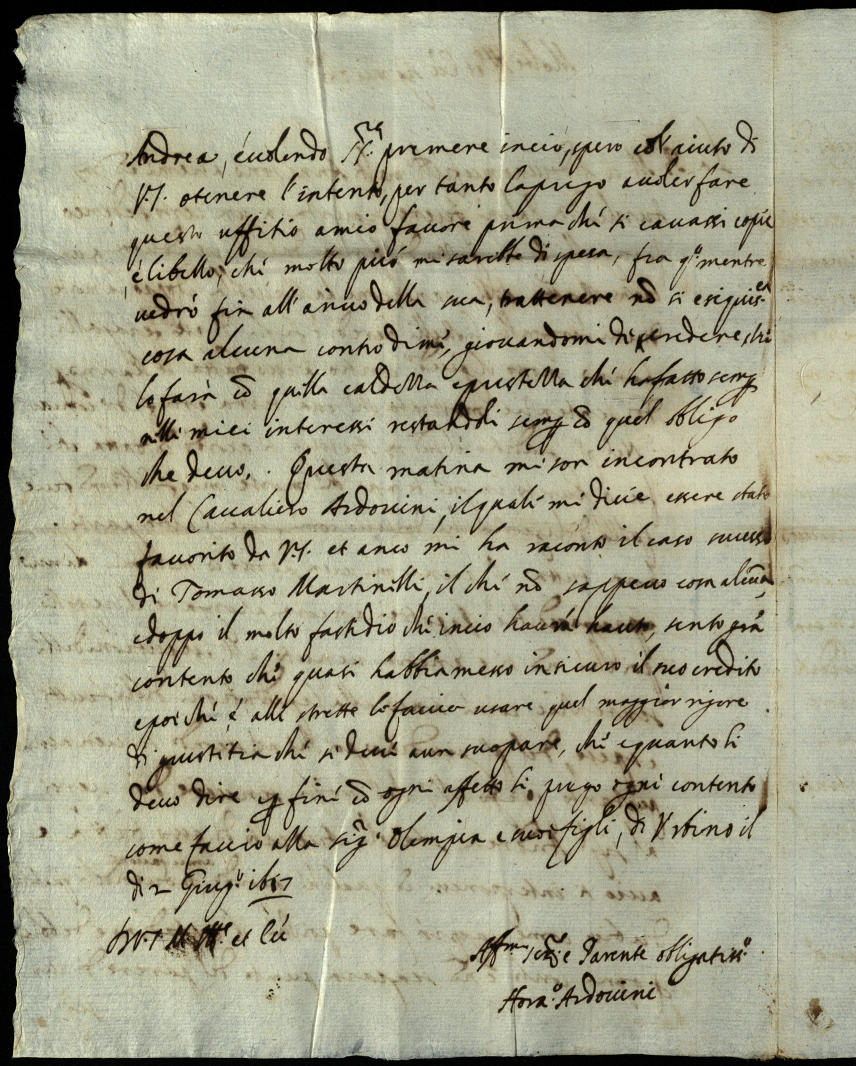 Andrea, é uolendo premere in ciò, spero col aiuto di
V.S. otenere l'intento, per tanto la prego a uoler fare
questo uffitio a mio fauore prima ché si cauassi copie
é libello, ché molto più mi sarebbe di spesa, fra q.o mentre
uedrò fin all'ariuo della sua, trattenere nõ si esiguisca
cosa alcuna contro di mé, giouandomi di credere, ché
lo farà cõ quella caldezza ché ha fatto semp
nelli miei interessi restandoli semp cõ quel obligo
che deuo. Questa matina mi son incontrato
nel Caualiero Ardouini, il quali mi dicie essere stato
fauorito da V.S. et anco mi ha raconto il caso sucesso
di Tomasso Martinelli, il ché nõ sappeuo cosa alcuna,
e doppo il molto fastidio ché in cio haurà hauto, sento grã
contento ché quasi habbia messo in sicuro il suo credito
e poi ché é alle strette lo faccia usare quel maggior rigore
di giustitia ché si deue a un suo pare, ché é quanto li
deuo dire p fine cõ ogni affetto li prego ogni contento
come faccio alla Sig.ra Olimpia e suoi figli, di Vrbino il
di 2 Giug.o
Di V.S. M. Ill.e et
Aff.mo ser.e e Parente obligatiss.o
Hora.o Ardouini